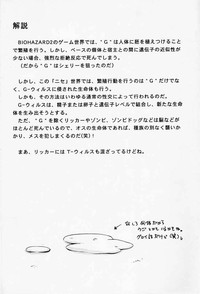 解説
BIOHAZARD2のゲーム世界では、"G"は人体に胚を植えつけることで
繁殖を行う。しかし、ベースの個体と宿主との間に遺伝子の近似性が
少ない場合、強烈な拒絶反応で死んでしまう。
(だから"G"はシェリーを狙ったのだ)
しかし、この「ニセ」世界では、繁殖行動を行うのは"G"だけでな
く、G-ウィルスに侵された生命体も行う。
しかも、その方法はいわゆる通常の性交によって行われるのだ。
G-ウィルスは、精子または卵子と遺伝子レベルで結合し、新たな生命体
を生み出そうとする。
ただ、"G"を除くリッカーやゾンビ、ゾンビドッグなどは脳などが
ほとんど死んでいるので、オスの生命体であれば、種族の別なく襲いか
かり、メスを犯しまくるのだ(笑)。
まあ、リッカーにはT-ウィルスも混ざってるけどね。